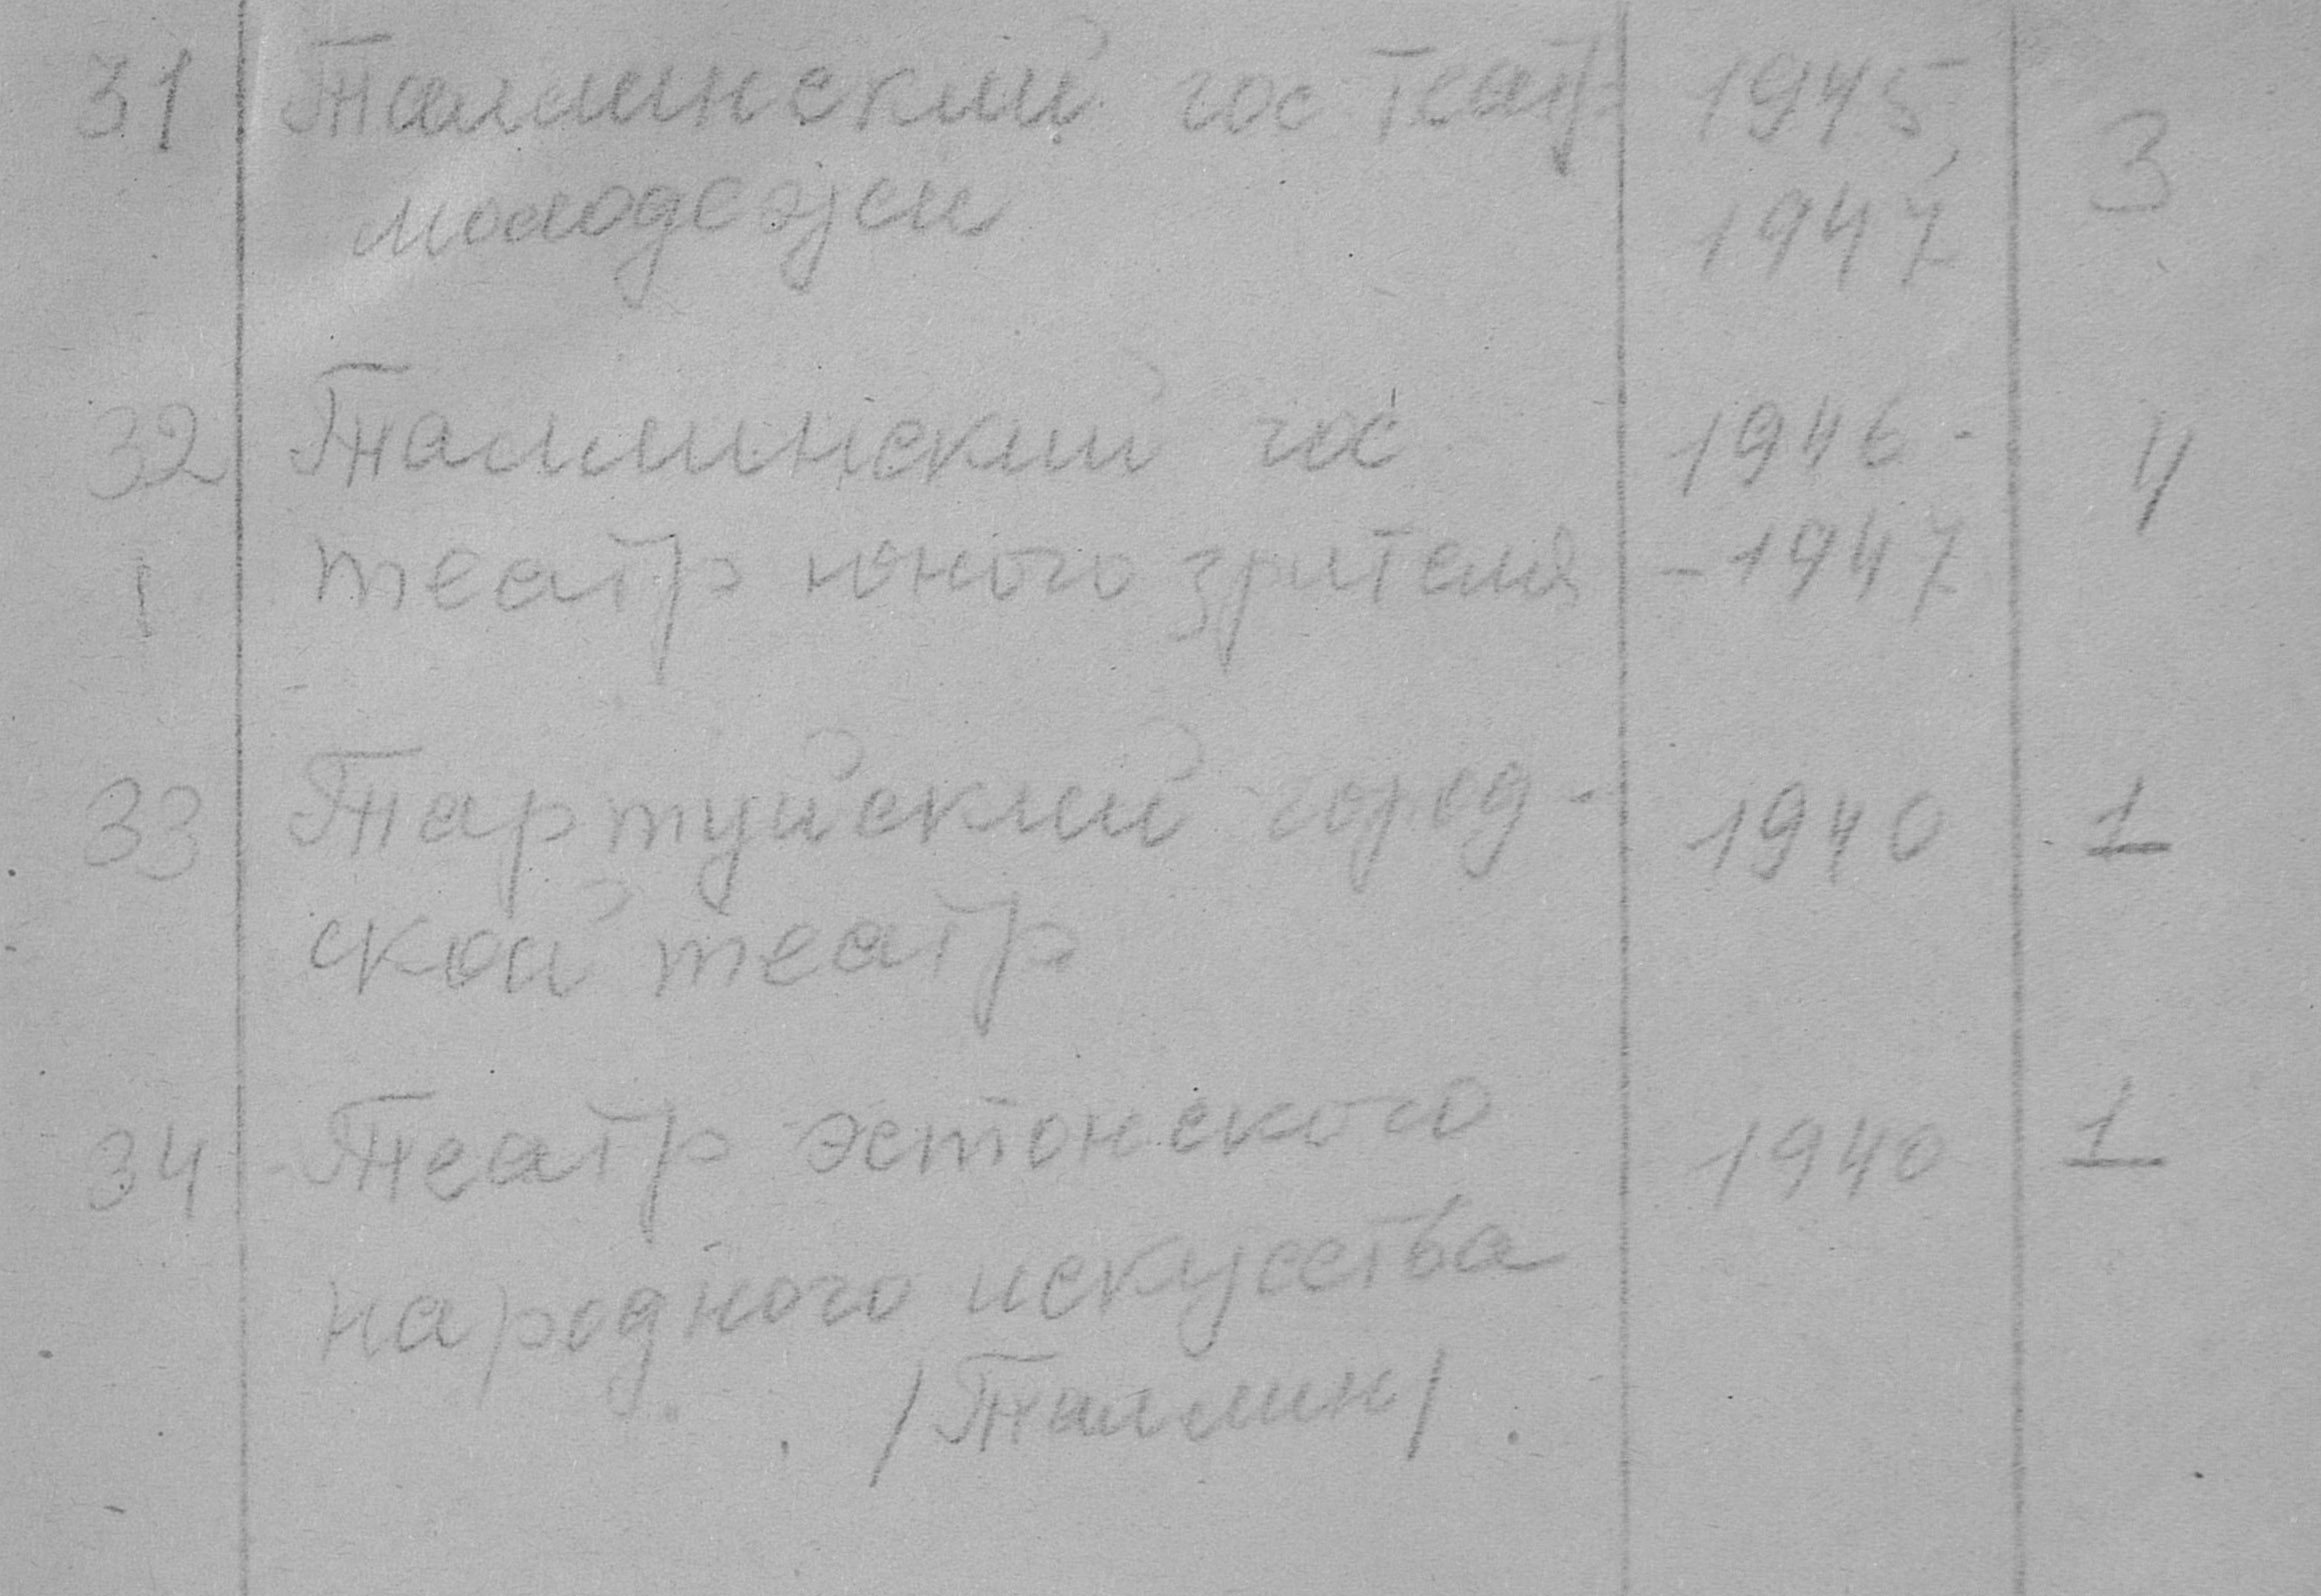 31 Таллинский гос театр 1945, 3
молодежи 1947
32 Таллинский гос 1946- 4
театр юного зрителя -1947
33 Тартуйский город- 1940 1
ской театр
34 Театр эстонского 1940 1
народного искусства
/Таллин/.